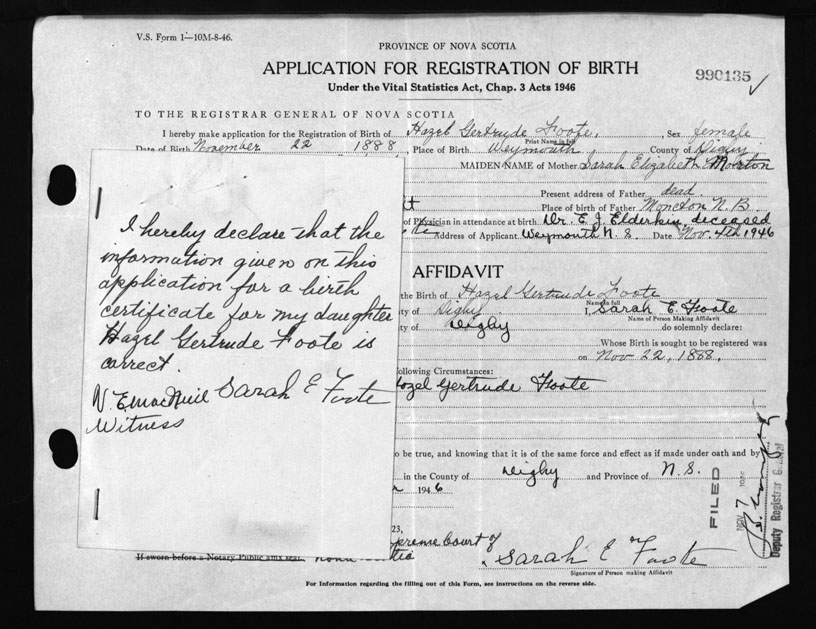 V.S. Form 1—10M-8-46.
PROVINCE OF NOVA SCOTIA
APPLICATION FOR REGISTRATION OF BIRTH
990135
Under the Vital Statistics Act, Chap. 3 Acts 1946
TO THE REGISTRAR GENERAL OF NOVA SCOTIA
I hereby make application for the Registration of Birth of Hazel Gertrude Foote, Sex female
Print Name in full
Date of Birth November 22 1888, Place of Birth Weymouth County of Digby
MAIDEN NAME of Mother Sarah Elizabeth Morton
Present address of Father dead.
Place of birth of Father Moncton N.B
of Physician in attendance at birth Dr. E. J. Elderkin, deceased
Address of Applicant Weymouth N.S. Date Nov. 4th 1946
AFFIDAVIT
the Birth of Hazel Gertrude Foote
Name in full
of Digby I, Sarah E. Foote
Name of Person Making Affidavit
ty of Digby do solemnly declare:
Whose Birth is sought to be registered was
on Nov 22, 1888.
ollowing Circumstances:
Hazel Gertrude Foote
to be true, and knowing that it is of the same force and effect as if made under oath and by
in the County of Digby and Province of N.S.
1946
23,
preme Court of
If sworn before a Notary Public affix seal.
Sarah E Foote
Signature of Person making Affidavit
For Information regarding the filling out of this Form, see instructions on the reverse side.
I hereby declare that the
information given on this
application for a birth
certificate for my daughter
Hazel Gertrude Foote is
correct.
Sarah E Foote
Witness
FILED
NOV 7
Deputy Registrar General